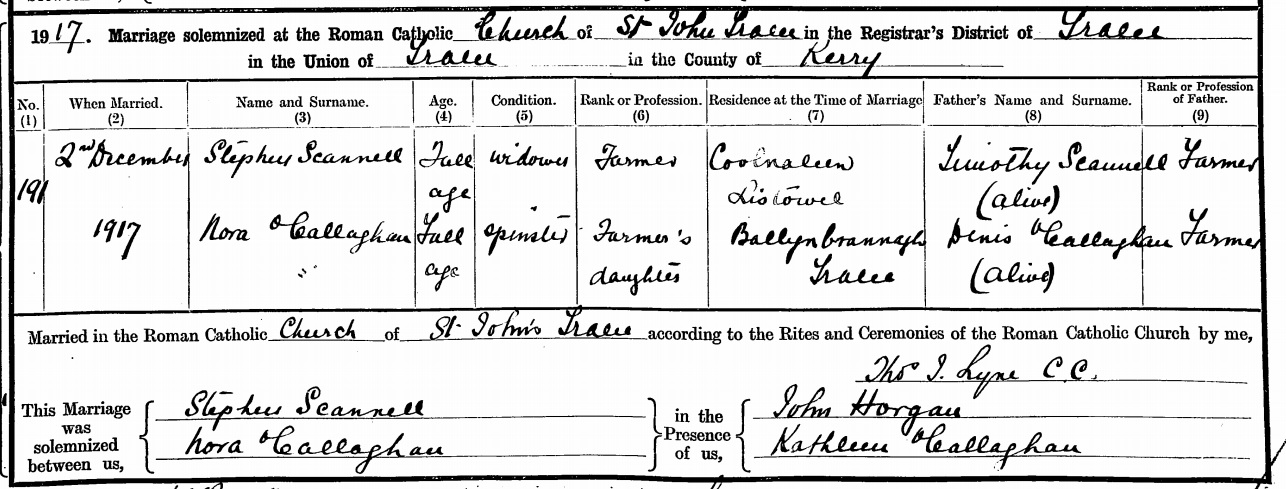 1917. Marriage solemnized at the Roman Catholic Church of St John Tralee in the Registrar's District of Tralee
in the Union of Tralee in the County of Kerry
No. (1) When Married. (2) Name and Surname. (3) Age. (4) Condition. (5) Rank or Profession. (6) Residence at the Time of Marriage (7) Father's Name and Surname. (8) Rank or Profession of Father. (9)
2nd December Stephen Scannell Full widower Farmer Coolnaleen Timothy Scannell Farmer
191 age Listowel (alive)
1917 Nora O'Callaghan Full spinster Farmer's Ballynbrannagh Denis O'Callaghan Farmer
age daughter Tralee (alive)
Married in the Roman Catholic Church of St John's Tralee according to the Rites and Ceremonies of the Roman Catholic Church by me,
Thos J. Lyne C.C.
This Marriage was solemnized between us,
Stephen Scannell
Nora O'Callaghan
in the Presence of us,
John Horgan
Kathleen O'Callaghan